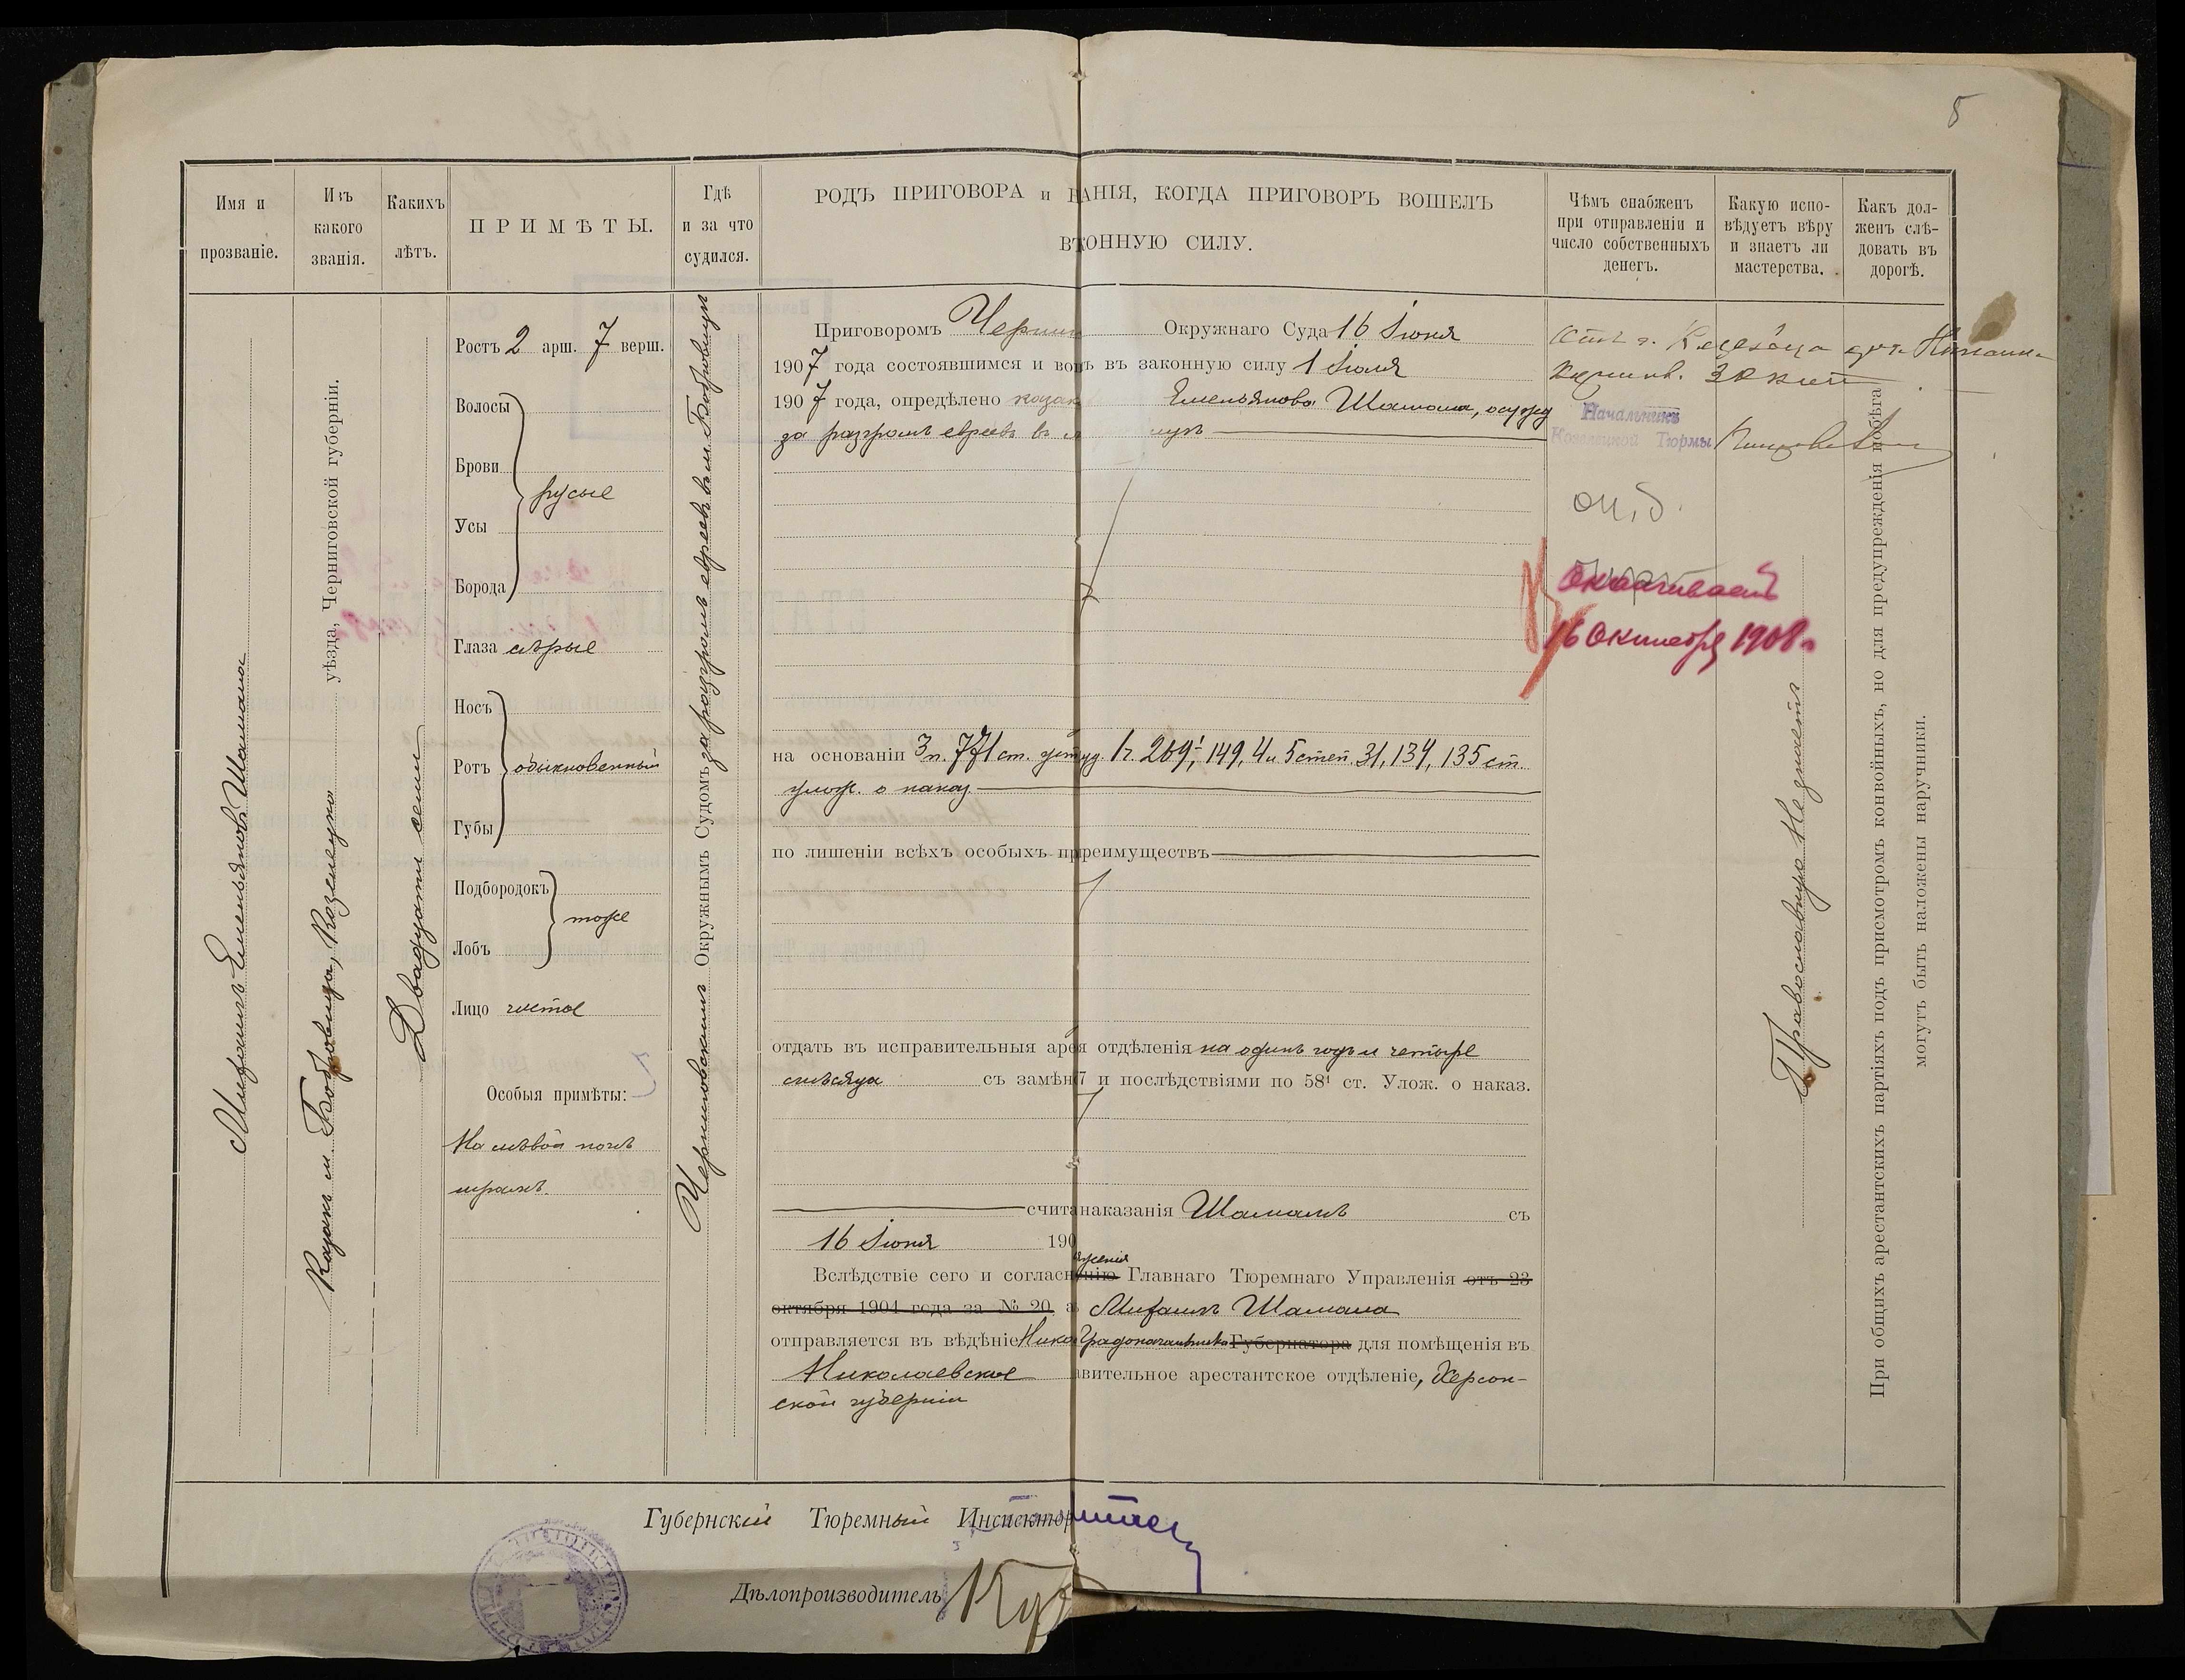 5
Имя и
прозваніе.
Изъ
какого
званія.
Какихъ
лѣтъ.
ПРИМѢТЫ.
Гдѣ
и за что
судился.
РОДЪ ПРИГОВОРА и ВАНІЯ, КОГДА ПРИГОВОРЪ ВОШЕЛЪ
ВЪ ОННУЮ СИЛУ.
Чѣмъ снабженъ
при отправленіи и
число собственныхъ
денегъ.
Какую испо-
вѣдуетъ вѣру
и знаетъ ли
мастерства.
Какъ дол-
женъ слѣ-
довать въ
дорогѣ.
Михаилъ Емельяновъ Шамала
Казакъ м. Бобровица, Козелецкаго уѣзда, Черниговской губерніи.
Двадцати семи
Ростъ 2 арш. 7 верш.
Волосы
Брови
русые
Усы
Борода
Глаза сѣрые
Носъ
Ротъ обыкновенный
Губы
Подбородокъ
тоже
Лобъ
Лицо чистое
Особыя примѣты:
На лѣвой ногѣ
шрамъ.
Черниговскимъ Окружнымъ Судомъ за разгромъ евреевъ въ м. Бобровицѣ
Приговоромъ Черни Окружнаго Суда 16 Іюня
1907 года состоявшимся и вош ъ въ законную силу 1 Іюля
1907 года, опредѣлено казак Емельянова Шамала, осужд
за разгромъ евреевъ въ м ицѣ
на основаніи 3 п. 771 ст. уст. уг. суд. 1 ч. 269¹, 149, 4 и 5 степ. 31, 134, 135 ст.
улож. о наказ.
по лишеніи всѣхъ особыхъ пр преимуществъ
отдать въ исправительныя аре я отдѣленія на одинъ годъ и четыре
мѣсяца съ замѣн и послѣдствіями по 58¹ ст. Улож. о наказ.
счита наказанія Шамалѣ съ
16 Іюня 190
яженія
Вслѣдствіе сего и согласн енію Главнаго Тюремнаго Управленія отъ 23
октября 1904 года за № 20 а Михаилъ Шамала
отправляется въ вѣдѣніе Нико Градоначальника Губернатора для помѣщенія въ
Николаевское авительное арестантское отдѣленіе, Херсон-
ской губерніи
Начальникъ
Козелецкой Тюрмы
Оканчиваетъ
16 Октября 1908 г.
Православную Не знаетъ
При общихъ арестантскихъ партіяхъ подъ присмотромъ конвойныхъ, но для предупрежденія побѣга
могутъ быть наложены наручники.
Губернскій Тюремный Инспектор
Дѣлопроизводитель